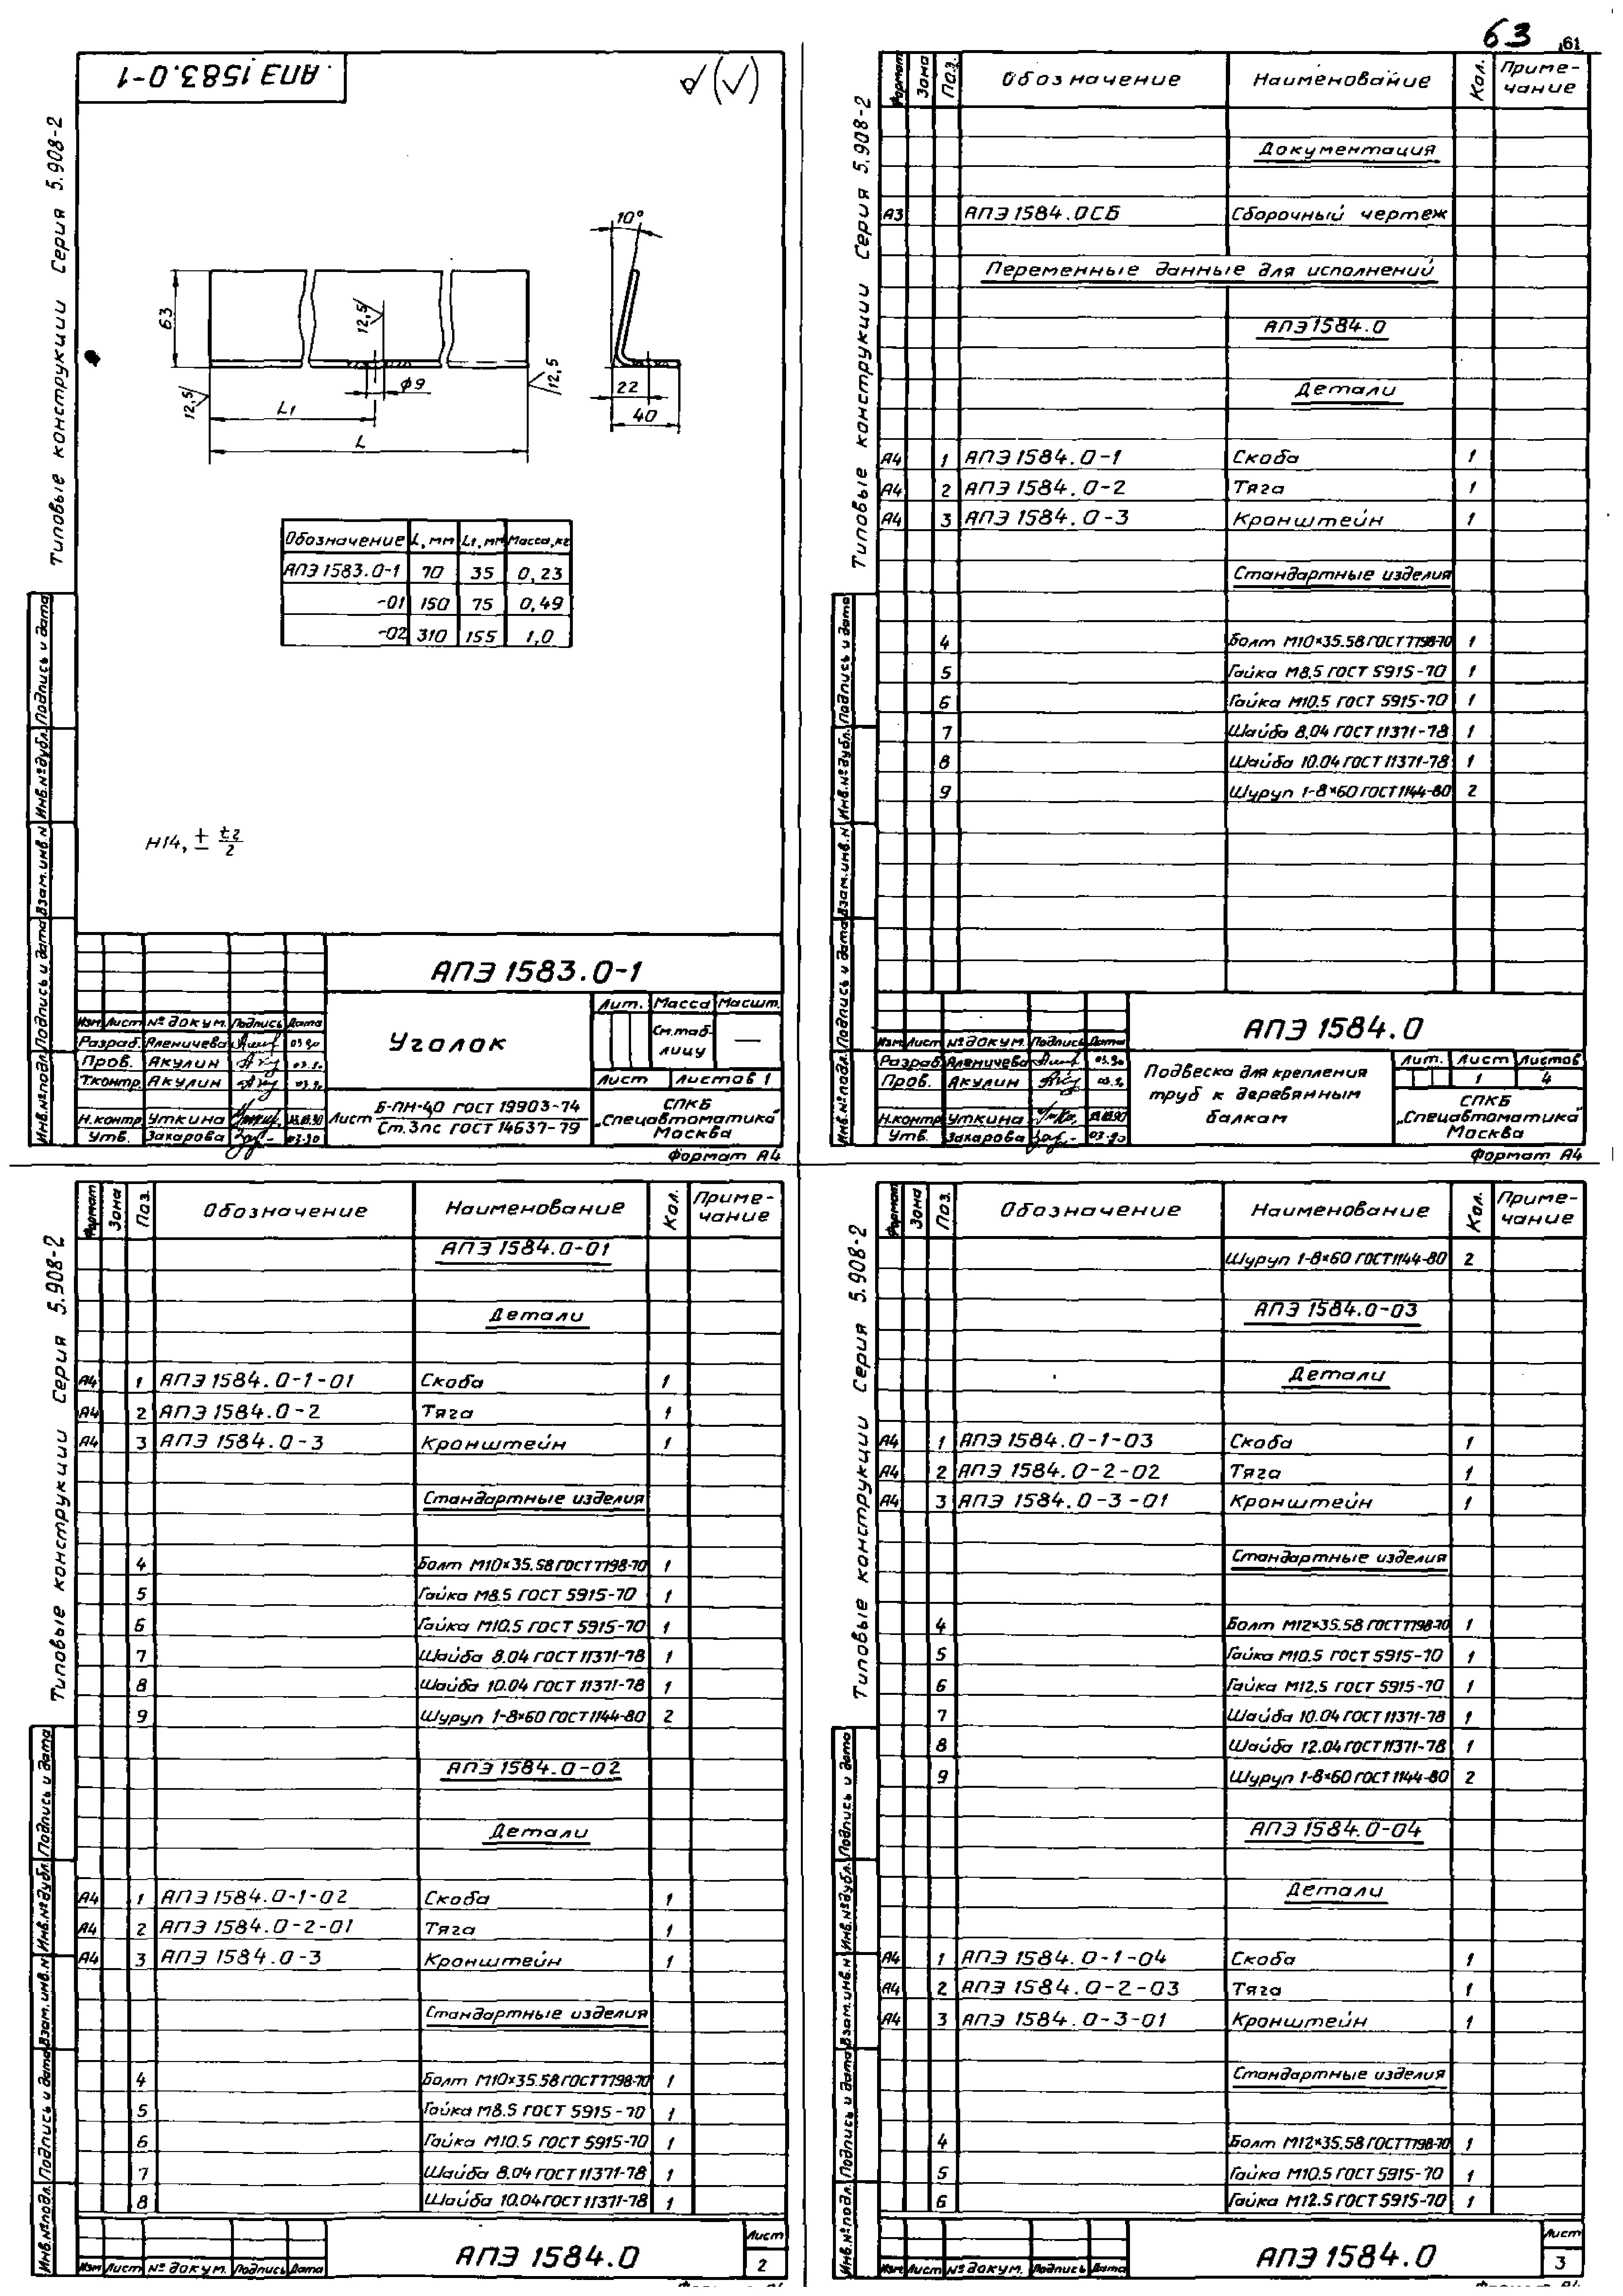 63 61
АПЭ 1583.0-1
Типовые конструкции Серия 5.908-2
10°
63
12,5
12,5
12,5
φ9
22
40
L1
L
Обозначение L, мм L1, мм Масса, кг
АПЭ 1583.0-1 70 35 0,23
-01 150 75 0,49
-02 310 155 1,0
H14, ± t2/2
Инв.№подл. Подпись и дата Взам.инв.№ Инв.№дубл. Подпись и дата
АПЭ 1583.0-1
Лит. Масса Масшт.
Изм. Лист № докум. Подпись Дата
Разраб. Аленичева 03.90
Пров. Акулин
Т.контр. Акулин
Н.контр. Уткина
Утв. Захарова 03.90
Уголок
См.таб-
лицу
—
Лист Листов 1
Лист Б-ПН-4,0 ГОСТ 19903-74
Ст.3пс ГОСТ 14637-79
СПКБ
„Спецавтоматика"
Москва
Формат А4
Типовые конструкции Серия 5.908-2
Формат Зона Поз. Обозначение Наименование Кол. Приме-
чание
Документация
А3 АПЭ 1584.0СБ Сборочный чертеж
Переменные данные для исполнений
АПЭ 1584.0
Детали
А4 1 АПЭ 1584.0-1 Скоба 1
А4 2 АПЭ 1584.0-2 Тяга 1
А4 3 АПЭ 1584.0-3 Кронштейн 1
Стандартные изделия
4 Болт М10×35.58 ГОСТ 7798-70 1
5 Гайка М8.5 ГОСТ 5915-70 1
6 Гайка М10.5 ГОСТ 5915-70 1
7 Шайба 8.04 ГОСТ 11371-78 1
8 Шайба 10.04 ГОСТ 11371-78 1
9 Шуруп 1-8×60 ГОСТ 1144-80 2
Инв.№подл. Подпись и дата Взам.инв.№ Инв.№дубл. Подпись и дата
АПЭ 1584.0
Изм. Лист № докум. Подпись Дата
Разраб. Аленичева 03.90
Пров. Акулин
Н.контр. Уткина
Утв. Захарова 03.90
Подвеска для крепления
труб к деревянным
балкам
Лит. Лист Листов
1 4
СПКБ
„Спецавтоматика"
Москва
Формат А4
Типовые конструкции Серия 5.908-2
Формат Зона Поз. Обозначение Наименование Кол. Приме-
чание
АПЭ 1584.0-01
Детали
А4 1 АПЭ 1584.0-1-01 Скоба 1
А4 2 АПЭ 1584.0-2 Тяга 1
А4 3 АПЭ 1584.0-3 Кронштейн 1
Стандартные изделия
4 Болт М10×35.58 ГОСТ 7798-70 1
5 Гайка М8.5 ГОСТ 5915-70 1
6 Гайка М10.5 ГОСТ 5915-70 1
7 Шайба 8.04 ГОСТ 11371-78 1
8 Шайба 10.04 ГОСТ 11371-78 1
9 Шуруп 1-8×60 ГОСТ 1144-80 2
АПЭ 1584.0-02
Детали
А4 1 АПЭ 1584.0-1-02 Скоба 1
А4 2 АПЭ 1584.0-2-01 Тяга 1
А4 3 АПЭ 1584.0-3 Кронштейн 1
Стандартные изделия
4 Болт М10×35.58 ГОСТ 7798-70 1
5 Гайка М8.5 ГОСТ 5915-70 1
6 Гайка М10.5 ГОСТ 5915-70 1
7 Шайба 8.04 ГОСТ 11371-78 1
8 Шайба 10.04 ГОСТ 11371-78 1
Инв.№подл. Подпись и дата Взам.инв.№ Инв.№дубл. Подпись и дата
Изм. Лист № докум. Подпись Дата
АПЭ 1584.0
Лист
2
Типовые конструкции Серия 5.908-2
Формат Зона Поз. Обозначение Наименование Кол. Приме-
чание
Шуруп 1-8×60 ГОСТ 1144-80 2
АПЭ 1584.0-03
Детали
А4 1 АПЭ 1584.0-1-03 Скоба 1
А4 2 АПЭ 1584.0-2-02 Тяга 1
А4 3 АПЭ 1584.0-3-01 Кронштейн 1
Стандартные изделия
4 Болт М12×35.58 ГОСТ 7798-70 1
5 Гайка М10.5 ГОСТ 5915-70 1
6 Гайка М12.5 ГОСТ 5915-70 1
7 Шайба 10.04 ГОСТ 11371-78 1
8 Шайба 12.04 ГОСТ 11371-78 1
9 Шуруп 1-8×60 ГОСТ 1144-80 2
АПЭ 1584.0-04
Детали
А4 1 АПЭ 1584.0-1-04 Скоба 1
А4 2 АПЭ 1584.0-2-03 Тяга 1
А4 3 АПЭ 1584.0-3-01 Кронштейн 1
Стандартные изделия
4 Болт М12×35.58 ГОСТ 7798-70 1
5 Гайка М10.5 ГОСТ 5915-70 1
6 Гайка М12.5 ГОСТ 5915-70 1
Инв.№подл. Подпись и дата Взам.инв.№ Инв.№дубл. Подпись и дата
Изм. Лист № докум. Подпись Дата
АПЭ 1584.0
Лист
3